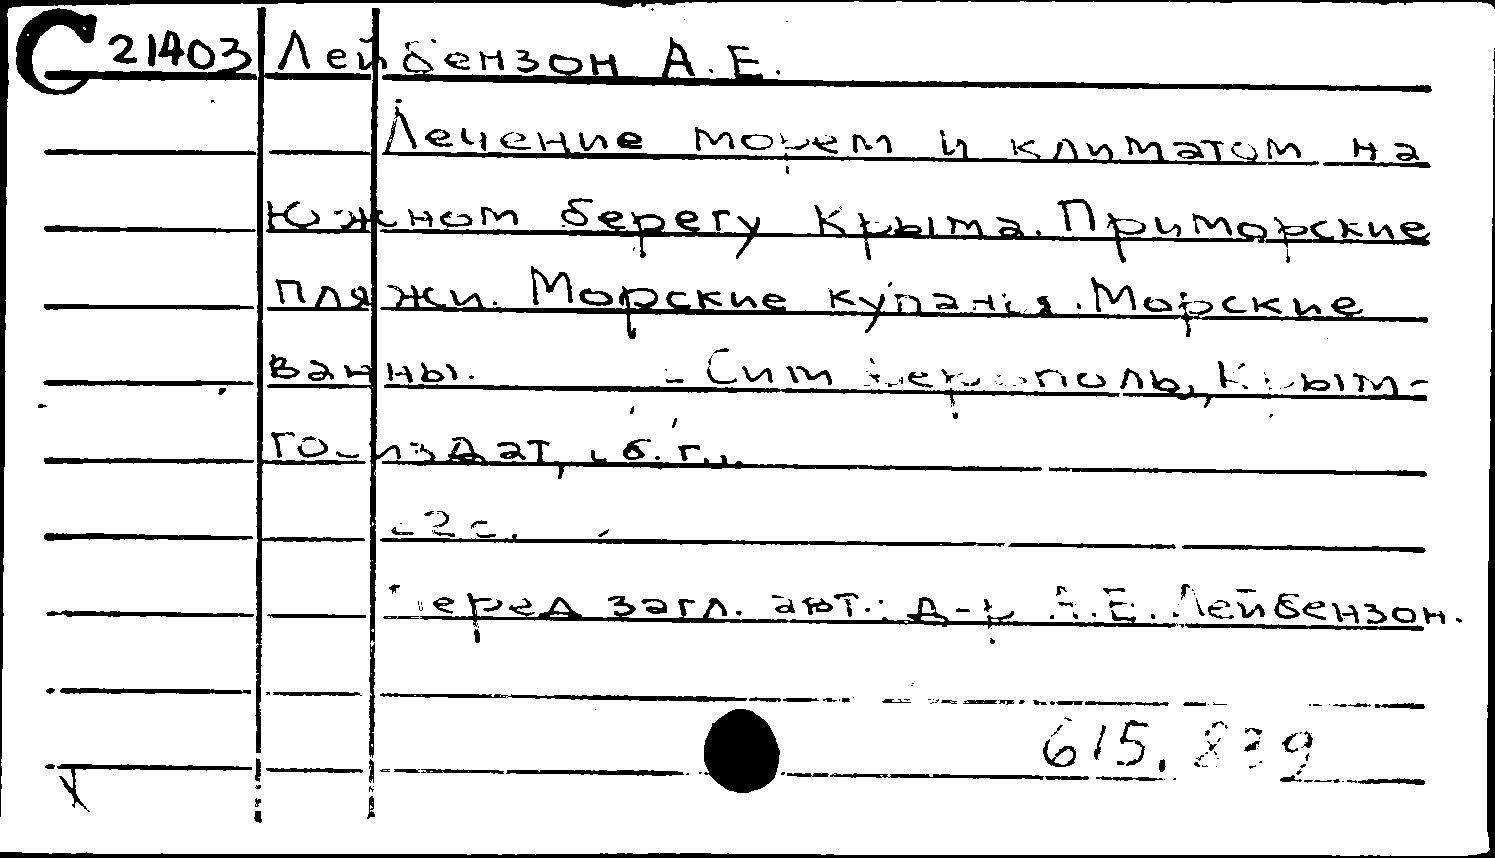 С 21403 Лейбензон А.Е.
Лечение морем и климатом на
Южном берегу Крыма. Приморские
пляжи. Морские купанья. Морские
ванны. - Симферополь, Крым-
госиздат, [б.г.].
Перед загл. авт.: д-р А.Е. Лейбензон.
615.839